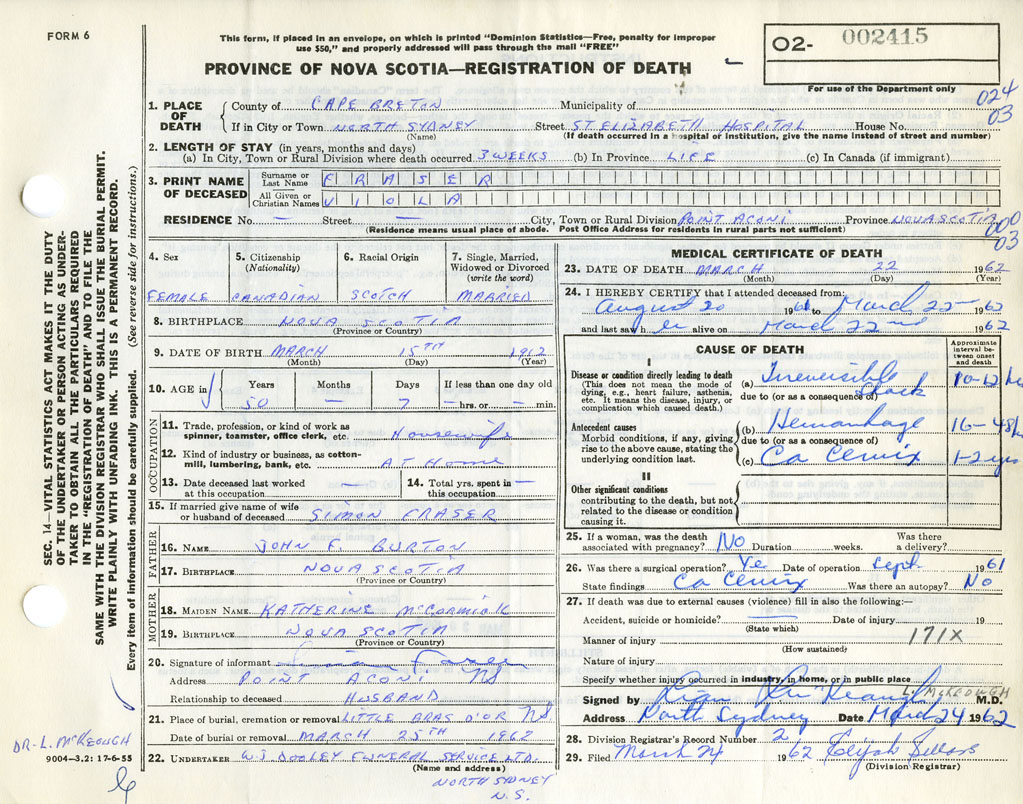 FORM 6
This form, if placed in an envelope, on which is printed "Dominion Statistics—Free, penalty for improper
use $50," and properly addressed will pass through the mail "FREE"
PROVINCE OF NOVA SCOTIA—REGISTRATION OF DEATH
O2- 002415
For use of the Department only
024
03
SEC. 14—VITAL STATISTICS ACT MAKES IT THE DUTY
OF THE UNDERTAKER OR PERSON ACTING AS UNDER-
TAKER TO OBTAIN ALL THE PARTICULARS REQUIRED
IN THE "REGISTRATION OF DEATH" AND TO FILE THE
SAME WITH THE DIVISION REGISTRAR WHO SHALL ISSUE THE BURIAL PERMIT.
WRITE PLAINLY WITH UNFADING INK. THIS IS A PERMANENT RECORD.
Every item of information should be carefully supplied. (See reverse side for instructions.)
1. PLACE OF DEATH County of CAPE BRETON Municipality of
If in City or Town NORTH SYDNEY Street ST ELIZABETH HOSPITAL House No.
(Name) (If death occurred in a hospital or institution, give the name instead of street and number)
2. LENGTH OF STAY (in years, months and days)
(a) In City, Town or Rural Division where death occurred 3 WEEKS (b) In Province LIFE (c) In Canada (if immigrant)
3. PRINT NAME OF DECEASED Surname or Last Name FRASER
All Given or Christian Names VIOLA
RESIDENCE No. — Street — City, Town or Rural Division POINT ACONI Province NOVA SCOTIA
(Residence means usual place of abode. Post Office Address for residents in rural parts not sufficient)
000
03
4. Sex 5. Citizenship (Nationality) 6. Racial Origin 7. Single, Married, Widowed or Divorced (write the word)
FEMALE CANADIAN SCOTCH MARRIED
8. BIRTHPLACE NOVA SCOTIA
(Province or Country)
9. DATE OF BIRTH MARCH 15TH 1912
(Month) (Day) (Year)
10. AGE in Years Months Days If less than one day old
50 — 7 — hrs. or — min.
OCCUPATION
11. Trade, profession, or kind of work as spinner, teamster, office clerk, etc. HOUSEWIFE
12. Kind of industry or business, as cotton-mill, lumbering, bank, etc. AT HOME
13. Date deceased last worked at this occupation — 14. Total yrs. spent in this occupation —
15. If married give name of wife or husband of deceased SIMON FRASER
FATHER
16. NAME JOHN F. BURTON
17. BIRTHPLACE NOVA SCOTIA
(Province or Country)
MOTHER
18. MAIDEN NAME KATHERINE McCORMICK
19. BIRTHPLACE NOVA SCOTIA
(Province or Country)
20. Signature of informant Simon Fraser
Address POINT ACONI NS
Relationship to deceased HUSBAND
21. Place of burial, cremation or removal LITTLE BRAS D'OR NS
Date of burial or removal MARCH 25TH 1962
22. UNDERTAKER W J DOOLEY FUNERAL SERVICE LTD.
(Name and address)
NORTH SYDNEY
N.S.
DR-L. McKEOUGH
9004—3.2: 17-6-55
MEDICAL CERTIFICATE OF DEATH
23. DATE OF DEATH MARCH 22 1962
(Month) (Day) (Year)
24. I HEREBY CERTIFY that I attended deceased from:
August 20 1961 to March 22nd 1962
and last saw her alive on March 22nd 1962
CAUSE OF DEATH
Approximate interval between onset and death
I
Disease or condition directly leading to death
(This does not mean the mode of dying, e.g., heart failure, asthenia, etc. It means the disease, injury, or complication which caused death.)
(a) Irreversible Shock 10-12 hrs
due to (or as a consequence of)
Antecedent causes
Morbid conditions, if any, giving rise to the above cause, stating the underlying condition last.
(b) Hemorrhage 16-48 hrs
due to (or as a consequence of)
(c) Ca Cervix 1-2 yrs
II
Other significant conditions
contributing to the death, but not related to the disease or condition causing it.
25. If a woman, was the death associated with pregnancy? No Duration weeks. Was there a delivery?
26. Was there a surgical operation? Yes Date of operation Sept. 1961
State findings Ca Cervix Was there an autopsy? No
27. If death was due to external causes (violence) fill in also the following:—
Accident, suicide or homicide? Date of injury 19
(State which)
Manner of injury 171X
(How sustained)
Nature of injury
Specify whether injury occurred in industry, in home, or in public place
L. McKEOUGH
Signed by M.D.
Address North Sydney Date March 24 1962
28. Division Registrar's Record Number 2
29. Filed March 24 1962
(Division Registrar)